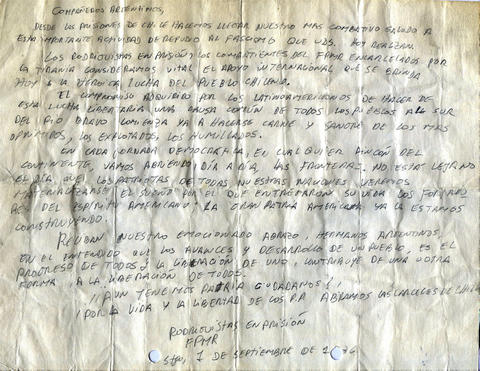 COMPAÑEROS ARGENTINOS,
DESDE LAS PRISIONES DE CHILE HACEMOS LLEGAR NUESTRO MAS COMBATIVO SALUDO A
ESTA IMPORTANTE ACTIVIDAD DE REPUDIO AL FASCISMO QUE UDS. HOY REALIZAN.
LOS RODRIGUISTAS EN PRISIÓN, LOS COMBATIENTES DEL FPMR ENCARCELADOS POR
LA TIRANÍA CONSIDERAMOS VITAL EL APOYO INTERNACIONAL QUE SE BRINDA
HOY A LA HEROICA LUCHA DEL PUEBLO CHILENO.
EL COMPROMISO ADQUIRIDO POR LOS LATINOAMERICANOS DE HACER DE
ESTA LUCHA LIBERTARIA UNA CAUSA COMÚN DE TODOS LOS PUEBLOS AL SUR
DEL RÍO BRAVO COMIENZA YA A HACERSE CARNE Y SANGRE DE LOS MAS
OPRIMIDOS, LOS EXPLOTADOS, LOS HUMILLADOS.
EN CADA JORNADA DEMOCRATICA, EN CUALQUIER RINCÓN DEL
CONTINENTE, VAMOS ABRIENDO, DÍA A DÍA, LAS FRONTERAS. NO ESTÁ LEJANO
EL DÍA QUE LOS PATRIOTAS DE TODAS NUESTRAS NACIONES VEREMOS
MATERIALIZARSE EL SUEÑO POR EL QUE ENTREGARON SU VIDA LOS FORJADO
RES DEL ESPÍRITU AMERICANO: LA GRAN PATRIA AMERICANA YA LA ESTAMOS
CONSTRUYENDO.
RECIBAN NUESTRO EMOCIONADO ABRAZO, HERMANOS ARGENTINOS,
EN EL ENTENDIDO QUE LOS AVANCES Y DESARROLLO DE UN PUEBLO, ES EL
PROGRESO DE TODOS; LA LIBERACIÓN DE UNO, CONTRIBUYE DE UNA U OTRA
FORMA A LA LIBERACIÓN DE TODOS.
¡¡AUN TENEMOS PATRIA CIUDADANOS!!
¡POR LA VIDA Y LA LIBERTAD DE LOS P.P. ABRAMOS LAS CARCELES DE CHILE!
RODRIGUISTAS EN PRISIÓN
FPMR
STGO, 7 DE SEPTIEMBRE DE